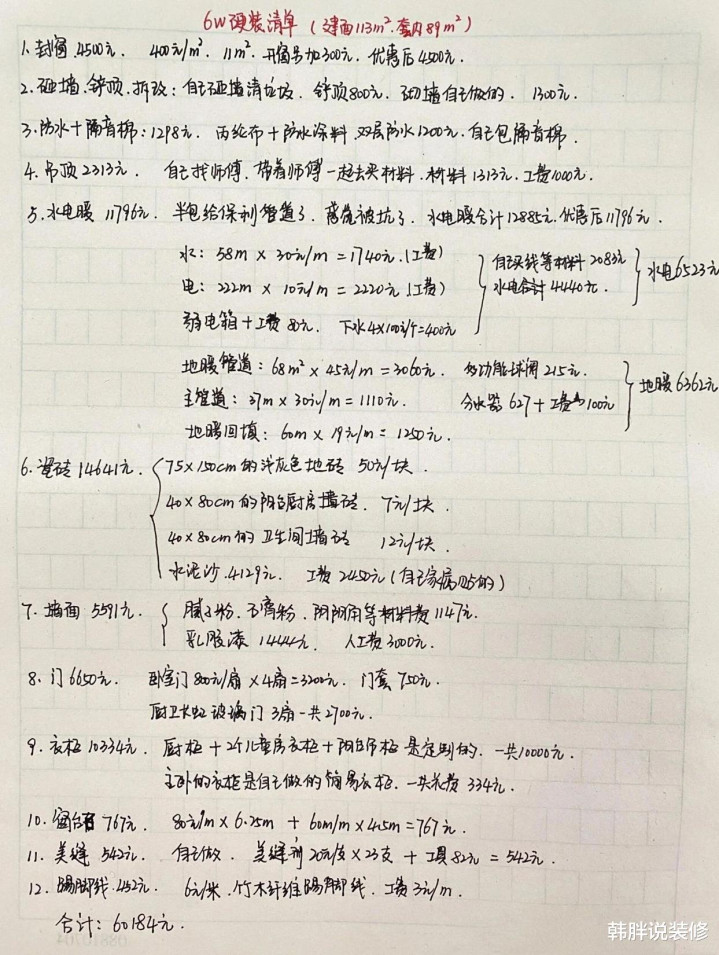 6W硬装清单 (建面113m².套内89m²)
1. 封窗.4500元. 400元/m². 11m². 开窗另加300元. 优惠后4500元.
2. 砸墙.铲顶.拆改: 自己砸墙清垃圾. 铲顶800元. 砌墙自己做的. 1300元.
3. 防水+隔音棉: 1298元. 丙纶布+防水涂料.双层防水1200元.自己包隔音棉.
4. 吊顶2313元. 自己找师傅.带着师傅一起去买材料.材料1313元.工费1000元.
5. 水电暖 11796元. 半包给保利管道了.感觉被坑了. 水电暖合计12885元.优惠后11796元.
水: 58m × 30元/m = 1740元.(工费)
自己买线等材料2083元
电: 222m × 10元/m = 2220元.(工费)
水电合计4440元.
水电6523元
弱电箱+工费80元. 下水4×100元/个=400元
地暖管道: 68m² × 45元/m = 3060元. 多功能球阀215元.
主管道: 37m × 30元/m = 1110元. 分水器 627+工费100元
地暖6362元
地暖回填: 60m × 19元/m = 1250元.
6. 瓷砖14641元. 75×150cm的浅灰色地砖 50元/块.
40×80cm的阳台厨房墙砖. 7元/块.
40×80cm的卫生间墙砖 12元/块.
水泥沙.4129元. 工费2450元(自己家病贴的)
7. 墙面 5591元. 腻子粉.石膏粉.阴阳角等材料费1147元.
乳胶漆 1444元. 人工费3000元.
8. 门6650元. 卧室门800元/扇×4扇=3200元. 门套750元.
厨卫长虹玻璃门3扇一共2700元.
9. 衣柜10334元. 厨柜+2个儿童房衣柜+阳台吊柜是定制的.一共10000元.
主卧的衣柜是自己做的简易衣柜.一共花费 334元.
10. 窗台石 767元. 80元/m × 6.25m + 60m/m × 4.5m = 767元.
11. 美缝 542元. 自己做. 美缝剂20元/支×23支 + 工具82元 = 542元.
12. 踢脚线.452元. 6元/米.竹木纤维踢脚线.工费3元/m.
合计: 60184元.
韩胖说装修